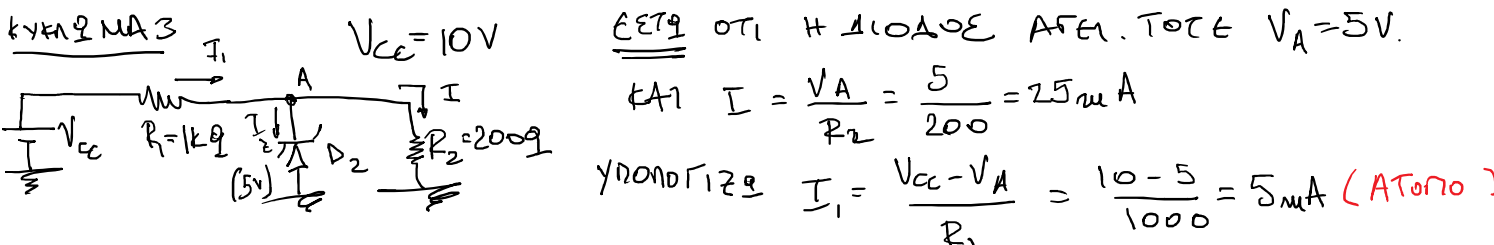 ΚΥΚΛΩΜΑ 3
V_CC = 10V
I₁
A
I
V_CC
R₁=1kΩ
I_Z
D_Z
(5V)
R₂=200Ω
ΕΣΤΩ ΟΤΙ Η ΔΙΟΔΟΣ ΑΓΕΙ. ΤΟΤΕ V_A = 5V.
ΚΑΙ I = V_A / R₂ = 5 / 200 = 25mA
ΥΠΟΛΟΓΙΖΩ I₁ = (V_CC - V_A) / R₁ = (10 - 5) / 1000 = 5mA (ΑΤΟΠΟ